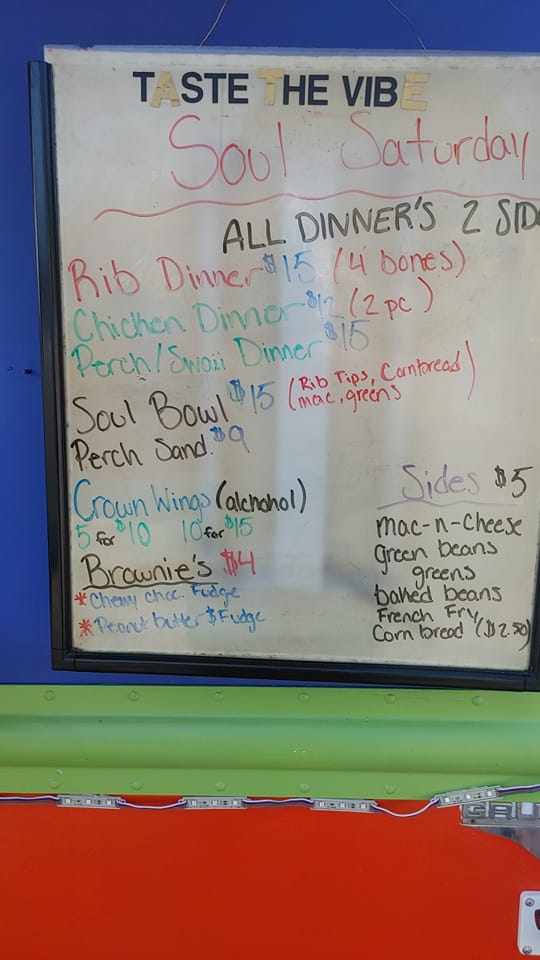 TASTE THE VIBE
Soul Saturday
ALL DINNER'S 2 SID
Rib Dinner $15 (4 bones)
Chicken Dinner $12 (2 pc)
Perch/Swaii Dinner $15
Soul Bowl $15 (Rib Tips, Cornbread
mac, greens)
Perch Sand. $9
Crown Wings (alchohol)
5 for $10 10 for $15
Brownie's $4
*Chewy choc. Fudge
*Peanut butter $ Fudge
Sides $5
mac-n-cheese
green beans
greens
baked beans
French Fry
Corn bread ($2.50)
GRU